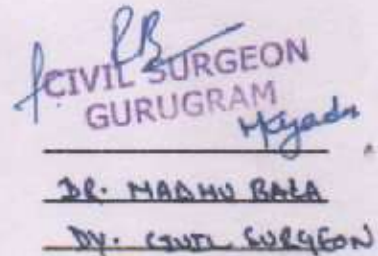 CIVIL SURGEON
GURUGRAM
DR. MADHU BALA
DY. CIVIL SURGEON